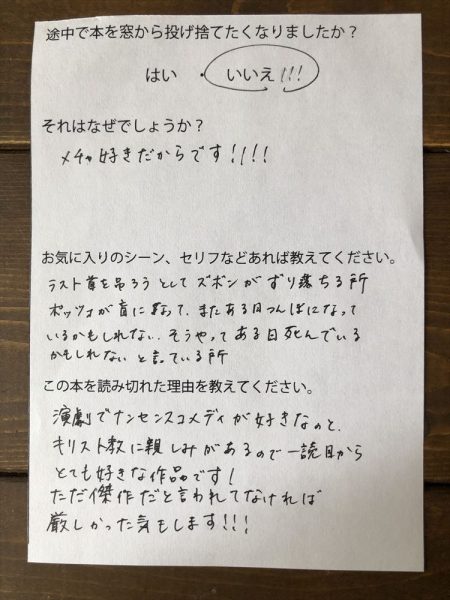 途中で本を窓から投げ捨てたくなりましたか？
はい ・ いいえ!!!
それはなぜでしょうか？
メチャ好きだからです!!!!
お気に入りのシーン、セリフなどあれば教えてください。
ラスト首を吊ろうとしてズボンがずり落ちる所
ポッツォが盲になって、またある日つんぼになって
いるかもしれない、そうやってある日死んでいる
かもしれないと言っている所
この本を読み切れた理由を教えてください。
演劇でナンセンスコメディが好きなのと、
キリスト教に親しみがあるので一読目から
とても好きな作品です!
ただ傑作だと言われてなければ
厳しかった気もします!!!